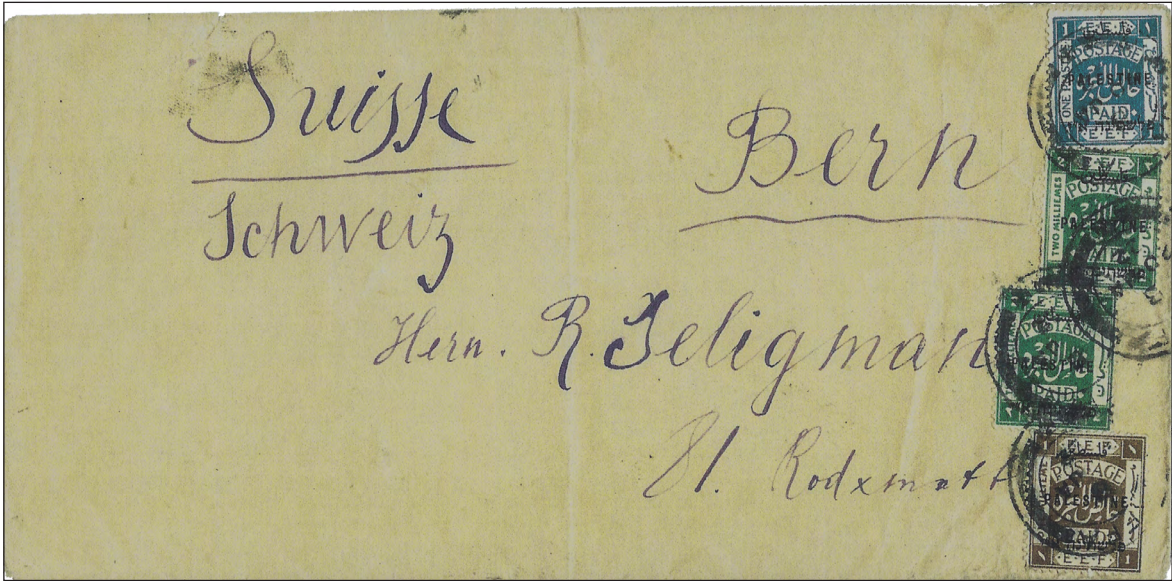 Suisse
Schweiz
Bern
Hern. R. Seligman
81. Rodxmatt
1 E.E.F. ١
POSTAGE
ONE PIASTRE
PALESTINE
PAID
E.E.F
E.E.F
POSTAGE
TWO MILLIEMES
PALESTINE
E.E.F
POSTAGE
PALESTINE
PAID
1 E.E.F ١
POSTAGE
PALESTINE
خالص اجره
PAID
١ E.E.F 1